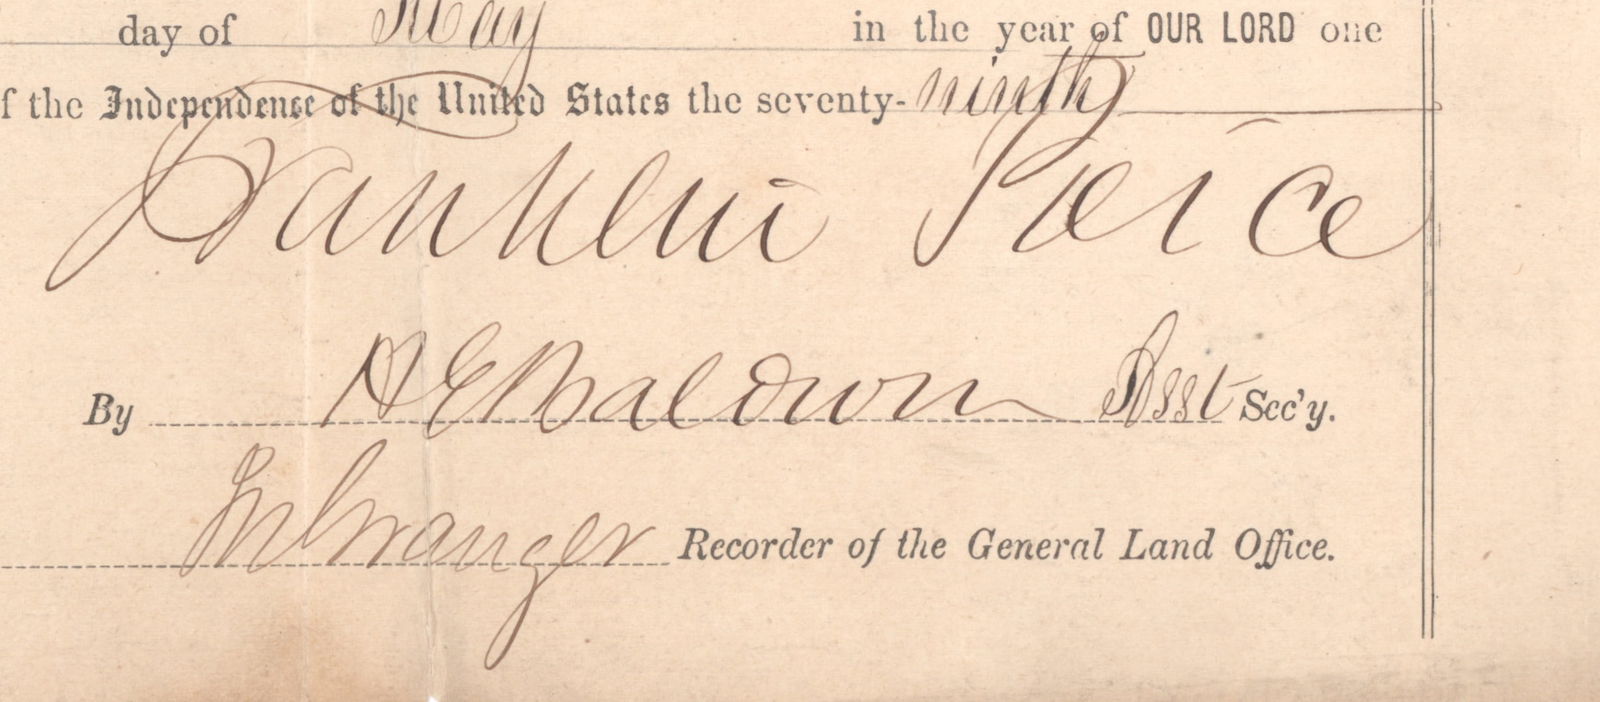 day of May in the year of OUR LORD one
f the Independence of the United States the seventy-ninth
Franklin Pierce
By H E Baldwin Asst Sec'y.
J N Granger Recorder of the General Land Office.